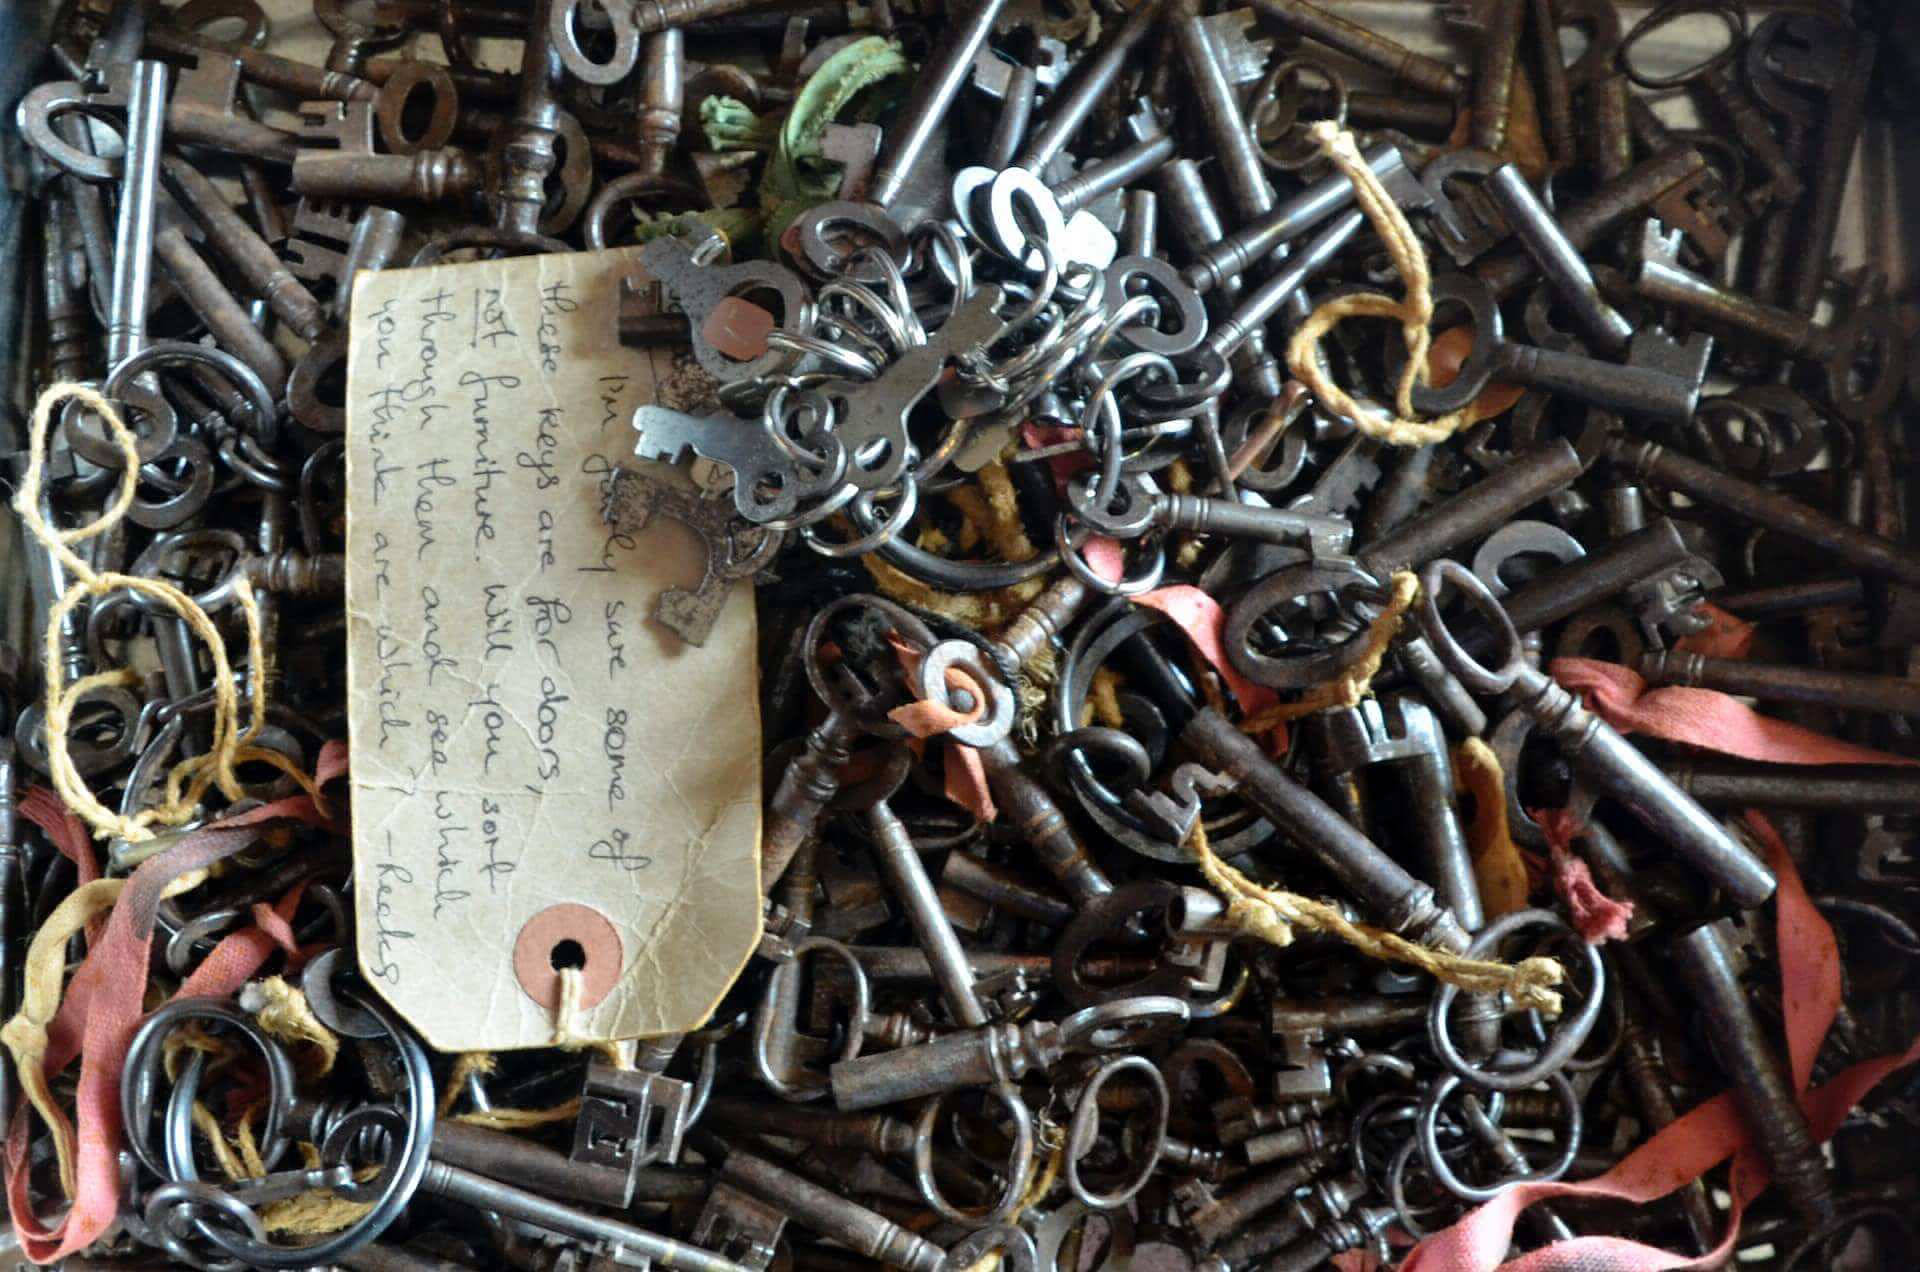 I'm fairly sure some of
these keys are for doors,
not furniture. Will you sort
through them and see which
you think are which? - Becks